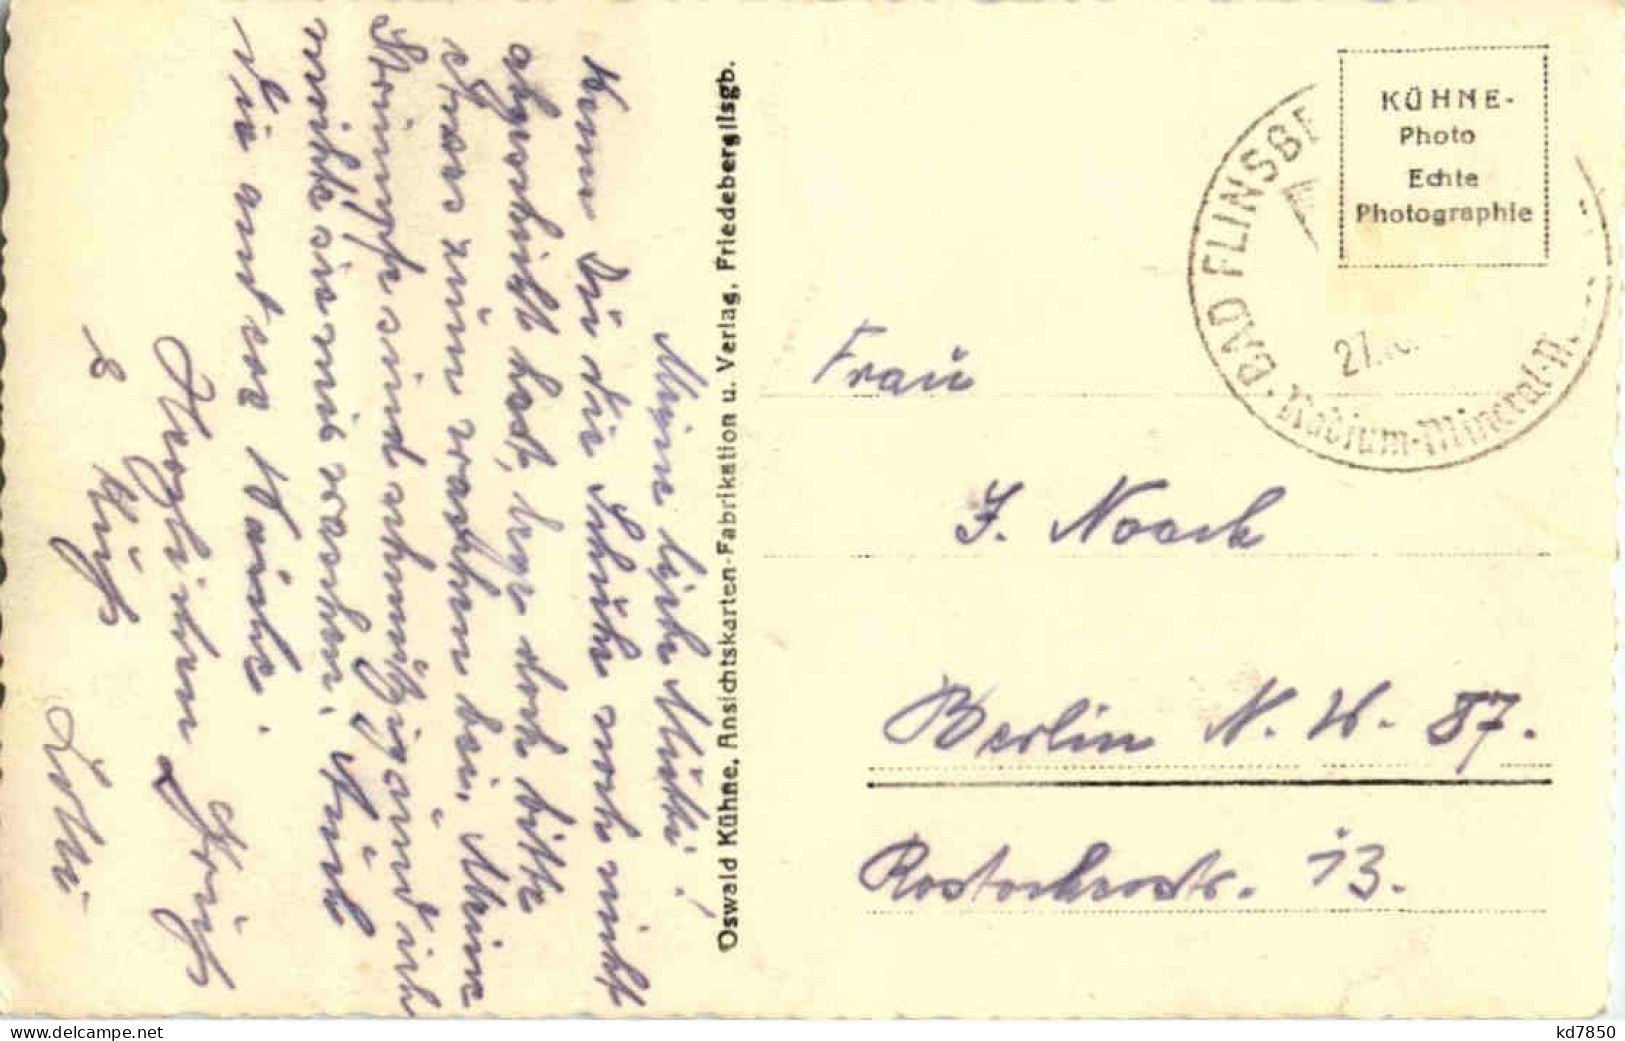 Meine liebe Mutti!
Wenn Du die Schuhe noch nicht
abgeschickt hast, lege doch bitte
etwas zum waschen bei. Meine
Strümpfe sind schmutzig und ich
möchte sie mir waschen. Auch
die andere Wäsche.
Herzlichen Gruß
& Kuß
Lotti
Oswald Kühne, Ansichtskarten-Fabrikation u. Verlag, Friedeberg/Isgb.
KÜHNE-
Photo
Echte
Photographie
BAD FLINSBE
27.
Radium-Mineral-
Frau
J. Noack
Berlin N. W. 87.
Rostockerstr. 13.